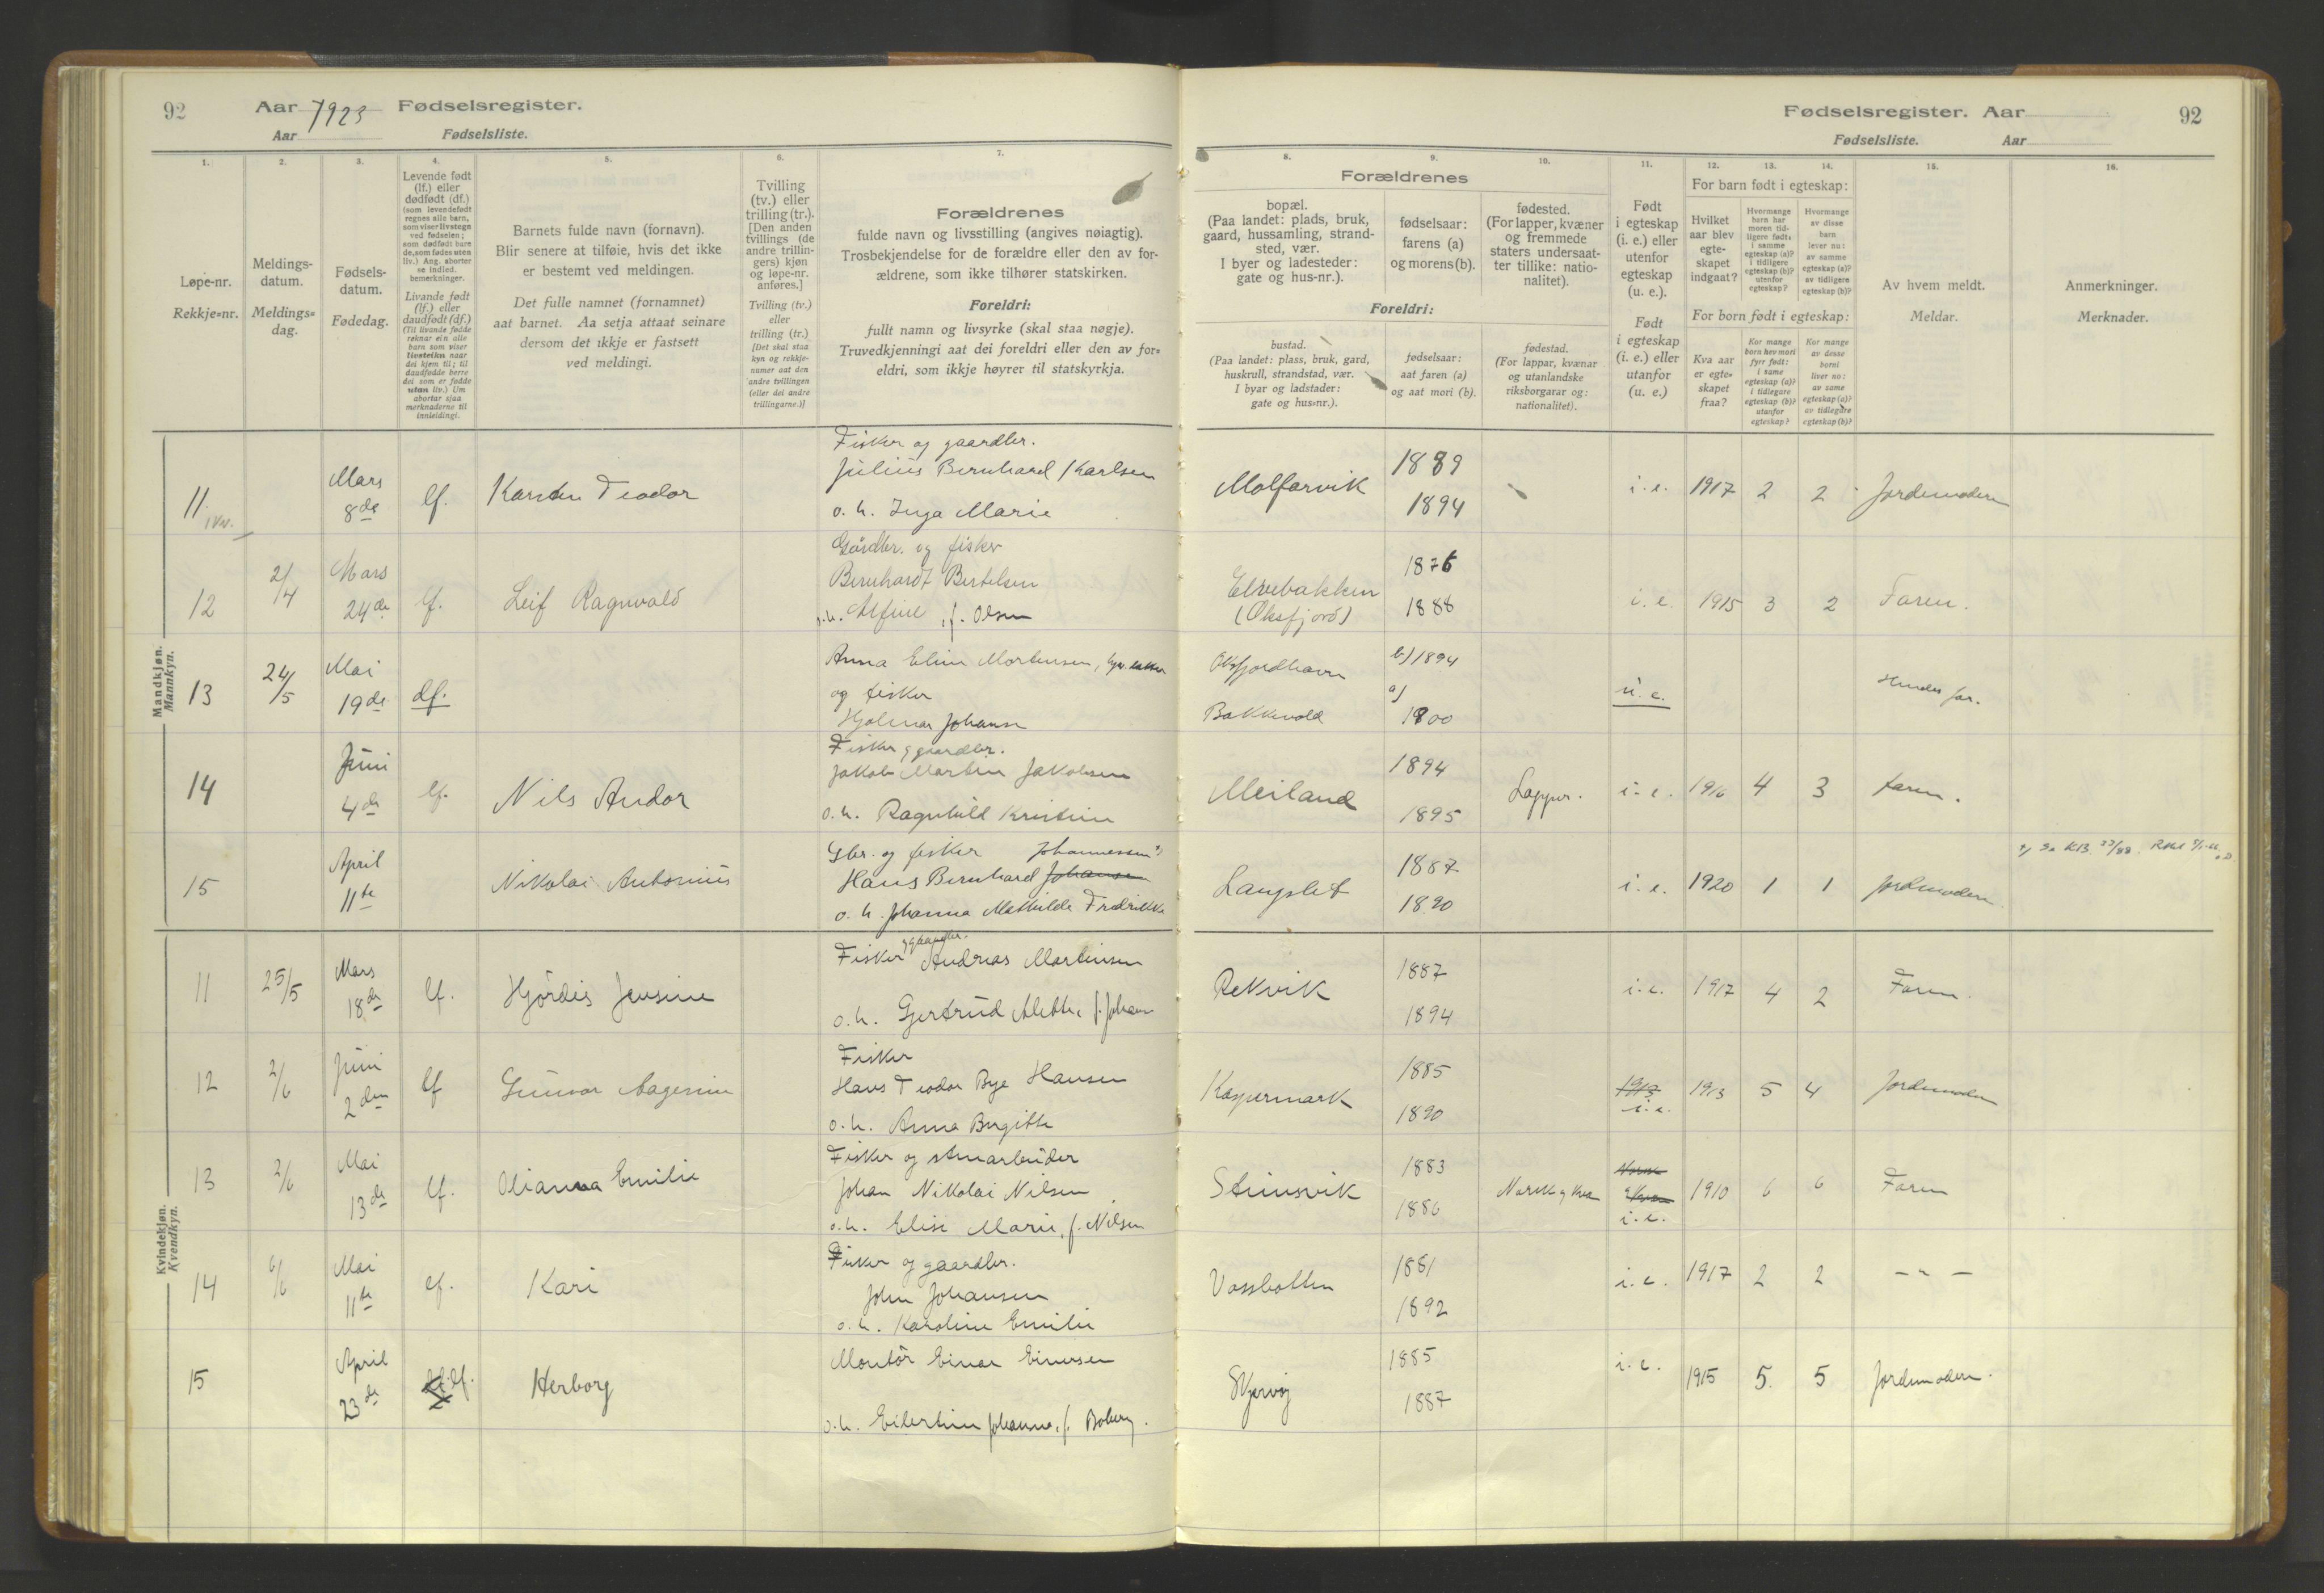 92
Aar 1923 Fødselsregister.
Aar Fødselsliste.
1.
Løpe-nr.
Rekkje=nr.
2.
Meldings-
datum.
Meldings=
dag.
3.
Fødsels-
datum.
Fødedag.
4.
Levende født
(lf.) eller
dødfødt (df.)
(som levendefødt
regnes alle barn,
som viser livstegn
ved fødselen;
som dødfødt barn
de, som fødes uten
liv.) Ang. aborter
se indled.
bemerkninger.
Livande født
(lf.) eller
daudfødt (df.)
(Til livande fødde
reknar ein alle
barn som viser
livsteikn naar
dei kjem til; til
daudfødde berre
dei som er fødde
utan liv.) Um
abortar sjaa
merknaderne til
innleidingi.
5.
Barnets fulde navn (fornavn).
Blir senere at tilføie, hvis det ikke
er bestemt ved meldingen.
Det fulle namnet (fornamnet)
aat barnet. Aa setja attaat seinare
dersom det ikkje er fastsett
ved meldingi.
6.
Tvilling
(tv.) eller
trilling (tr.).
[Den anden
tvillings (de
andre trillin-
gers) kjøn
og løpe-nr.
anføres.]
Tvilling (tv.)
eller
trilling (tr.)
[Det skal staa
kyn og rekkje-
numer aat den
andre tvillingen
(eller dei andre
trillingarne.)]
7.
Forældrenes
fulde navn og livsstilling (angives nøiagtig).
Trosbekjendelse for de forældre eller den av for-
ældrene, som ikke tilhører statskirken.
Foreldri:
fullt namn og livsyrke (skal staa nøgje).
Truvedkjenningi aat dei foreldri eller den av for=
eldri, som ikkje høyrer til statskyrkja.
Mandkjøn.
Mannkyn.
11
Mars
8de
lf.
Karsten Teodor
Fisker og gaardbr.
Julius Bernhard Karlsen
o. h. Inga Marie
12
2/4
Mars
24de
lf.
Leif Ragnvald
Gårdbr. og fisker
Bernhardt Bertelsen
o.h. Alfine, f. Olsen
13
24/5
Mai
19de
df.
Anna Eline Mortensen,
og fisker
Hjalmar Johansen
14
Juni
4de
lf.
Nils Andor
Fisker og gaardbr.
Jakob Martin Jakobsen
o. h. Ragnhild Kristine
15
April
11te
Nikolai Antonius
Gbr. og fisker Johannessen
Hans Bernhard Johansen
o. h. Johanna Mathilde Fredrikke
Kvindekjøn.
Kvendkyn.
11
25/5
Mars
18de
lf.
Hjördis Jensine
Fisker og gaardbr. Andreas Martinsen
o.h. Gjertrud Alette, f. Johans
12
2/6
Juni
2den
lf
Gunvor Aagesine
Fisker
Hans Teodor Bye Hansen
o.h. Anna Birgitte
13
2/6
Mai
13de
lf.
Olianna Emilie
Fisker og stenarbeider
Johan Nikolai Nilsen
o.h. Elise Marie, f. Nilsen
14
6/6
Mai
11te
lf.
Kari
Fisker og gaardbr.
John Johansen
o.h. Karoline Emilie
15
April
23de
lf.
Herborg
Montör Einar Einersen
o.h. Eilertine Johanna, f. Boberg.
Fødselsregister. Aar
92
Fødselsliste. Aar
8.
Forældrenes
bopæl.
(Paa landet: plads, bruk,
gaard, hussamling, strand-
sted, vær.
I byer og ladesteder:
gate og hus-nr.).
9.
fødselsaar:
farens (a)
og morens (b).
10.
fødested.
(For lapper, kvæner
og fremmede
staters undersaat-
ter tillike: natio-
nalitet).
Foreldri:
bustad.
(Paa landet: plass, bruk, gard,
huskrull, strandstad, vær.
I byar og ladstader:
gate og hus=nr.).
fødselsaar:
aat faren (a)
og aat mori (b).
fødestad.
(For lappar, kvænar
og utanlandske
riksborgarar og:
nationalitet).
11.
Født
i egteskap
(i. e.) eller
utenfor
egteskap
(u. e.).
Født
i egteskap
(i. e.) eller
utanfor
(u. e.)
12.
13.
14.
For barn født i egteskap:
Hvilket
aar blev
egte-
skapet
indgaat?
Hvormange
barn har
moren tid-
ligere født:
i samme
egteskap (a)?
i tidligere
egteskap (b)?
utenfor
egteskap?
Hvormange
av disse
barn
lever nu:
av samme
egteskap (a)?
av tidligere
egteskap (b)?
For born født i egteskap:
Kva aar
er egte=
skapet
fraa?
Kor mange
born hev mori
fyrr født:
i same
egteskap (a)?
i tidlegare
egteskap (b)?
utanfor
egteskap?
Kor mange
av desse
borni
liver no:
av same
egteskap (a)?
av tidlegare
egteskap (b)?
15.
Av hvem meldt.
Meldar.
16.
Anmerkninger.
Merknader.
Molfarvik
1889
1894
i. e.
1917
2
2
Jordemoderen
Elvebakken
(Oksfjord)
1876
1888
i. e.
1915
3
2
Faren.
Oksfjordhavn
b) 1894
a)
Bakkevold
1900
u. e.
Hendes far.
Meiland
1894
1895
Lapper.
i. e.
1916
4
3
Faren.
Langslet
1887
1890
i. e.
1920
1
1
Jordmoderen
Rekvik
1887
1894
i. e.
1917
4
2
Faren.
Kaspermark
1885
1890
1913
i. e.
1913
5
4
Jordemoderen
Steinsvik
1883
1886
Norsk og Kven
Norsk
Kven
i. e.
1910
6
6
Faren
Vassbotten
1881
1892
i. e.
1917
2
2
— " —
Skjervøy
1885
1887
i. e.
1915
5.
5
Jordemoderen.